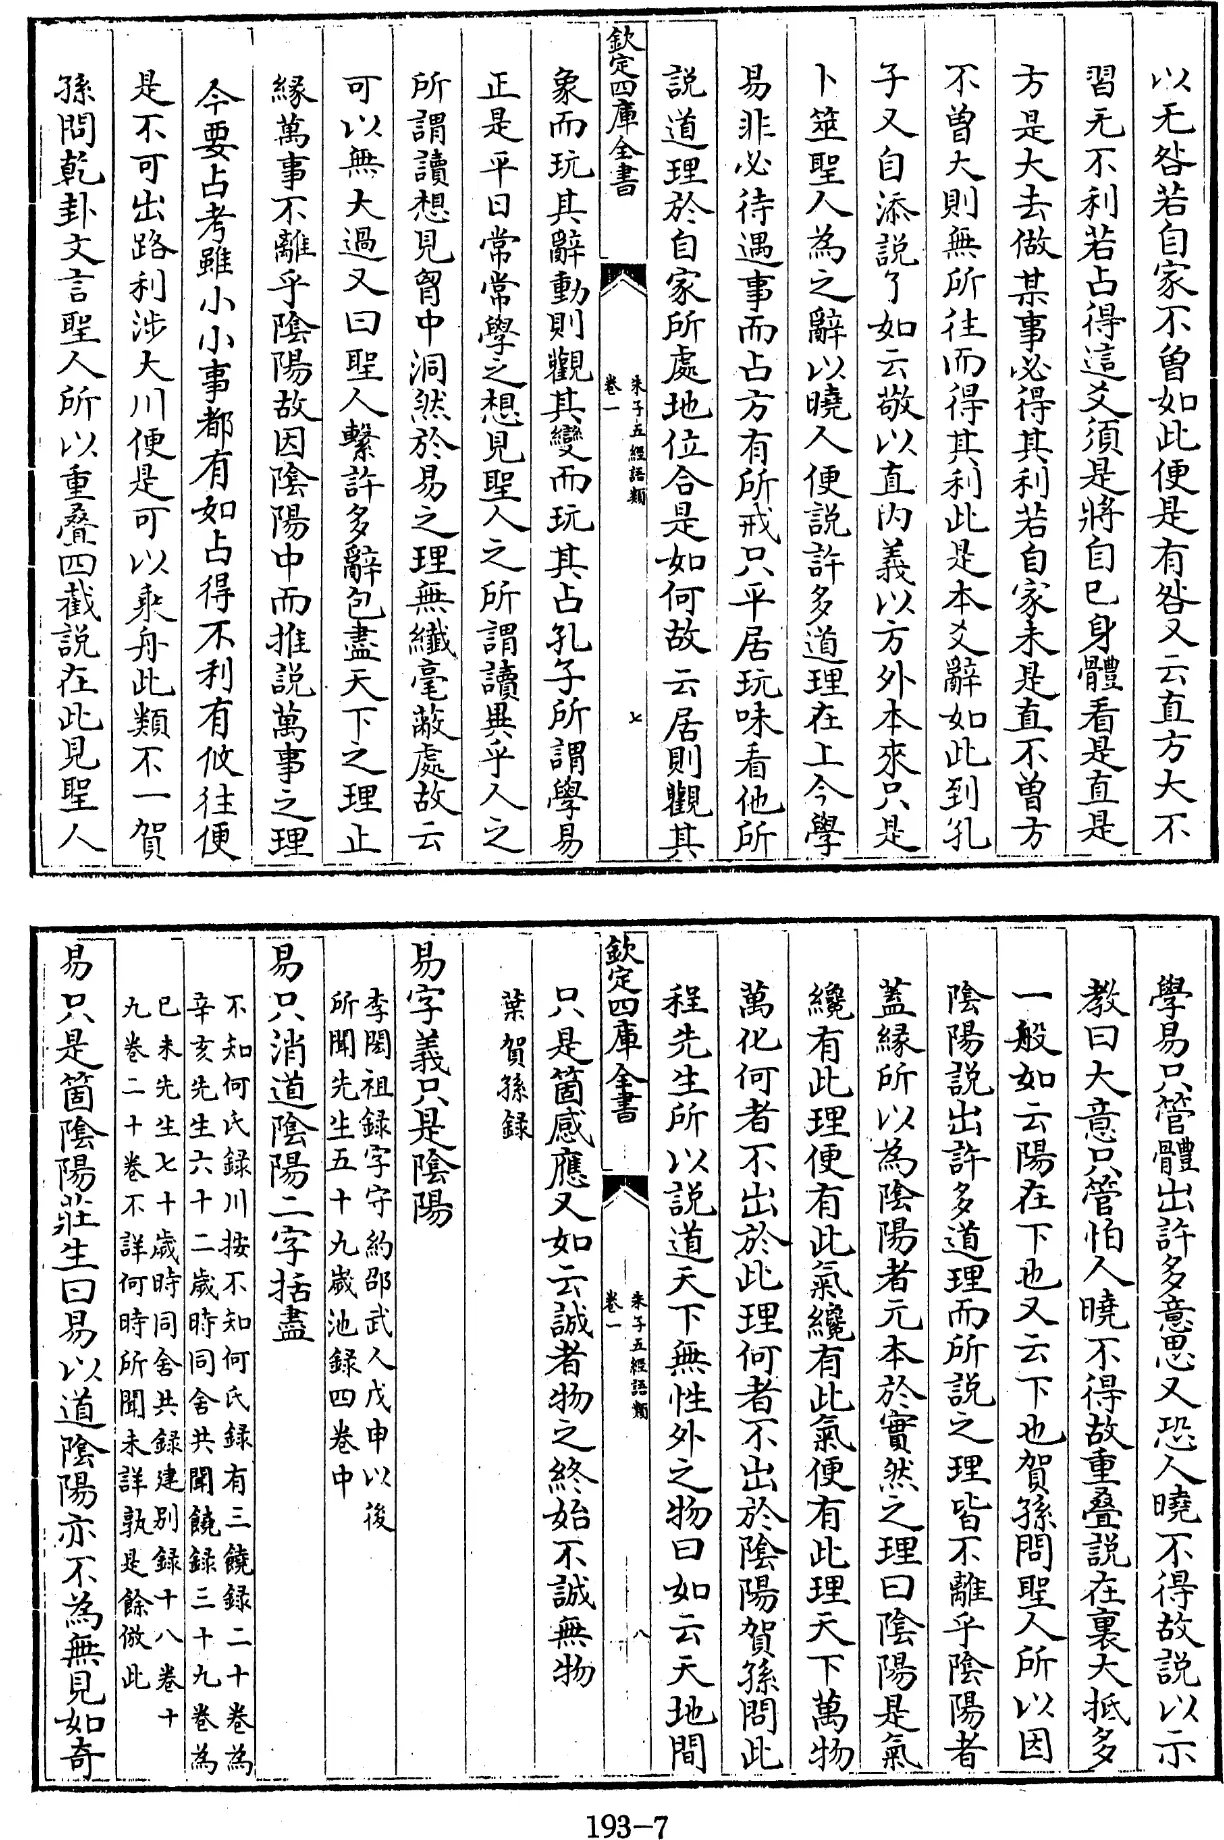 以无咎若自家不曽如此便是有咎又云直方大不
習无不利若占得這爻須是將自已身體看是直是
方是大去做某事必得其利若自家未是直不曽方
不曽大則無所徃而得其利此是本爻辭如此到孔
子又自添説了如云敬以直内義以方外本來只是
卜筮聖人為之辭以曉人便説許多道理在上今學
易非必待遇事而占方有所戒只平居玩味看他所
説道理於自家所處地位合是如何故云居則觀其
欽定四庫全書
朱子五經語類
卷一
七
象而玩其辭動則觀其變而玩其占孔子所謂學易
正是平日常常學之想見聖人之所謂讀異乎人之
所謂讀想見胷中洞然於易之理無纎毫蔽處故云
可以無大過又曰聖人繫許多辭包盡天下之理止
縁萬事不離乎陰陽故因陰陽中而推説萬事之理
今要占考雖小小事都有如占得不利有攸往便
是不可出路利涉大川便是可以乘舟此類不一賀
孫問乾卦文言聖人所以重疊四截説在此見聖人
學易只管體出許多意思又恐人曉不得故説以示
教曰大意只管怕人曉不得故重疊説在裏大抵多
一般如云陽在下也又云下也賀孫問聖人所以因
陰陽説出許多道理而所説之理皆不離乎陰陽者
蓋縁所以為陰陽者元本於實然之理曰陰陽是氣
纔有此理便有此氣纔有此氣便有此理天下萬物
萬化何者不出於此理何者不出於陰陽賀孫問此
程先生所以説道天下無性外之物曰如云天地間
欽定四庫全書
朱子五經語類
卷一
八
只是箇感應又如云誠者物之終始不誠無物
葉賀孫録
易字義只是陰陽
李閎祖録字守約邵武人戊申以後
所聞先生五十九歲池録四卷中
易只消道陰陽二字括盡
不知何氏録川按不知何氏録有三饒録二十卷為
辛亥先生六十二歲時同舍共聞饒録三十九卷為
已未先生七十歲時同舍共録建别録十八卷十
九卷二十卷不詳何時所聞未詳孰是餘倣此
易只是箇陰陽莊生曰易以道陰陽亦不為無見如奇
193-7